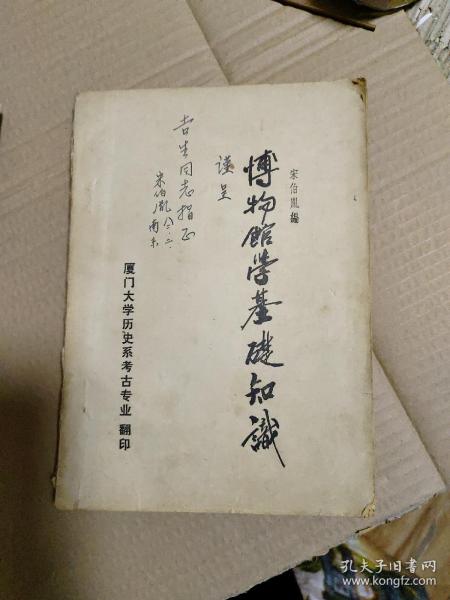 宋伯胤編
博物館学基礎知識
谨呈
吉生同志指正
宋伯胤
南京
厦门大学历史系考古专业 翻印
孔夫子旧书网
www.kongfz.com